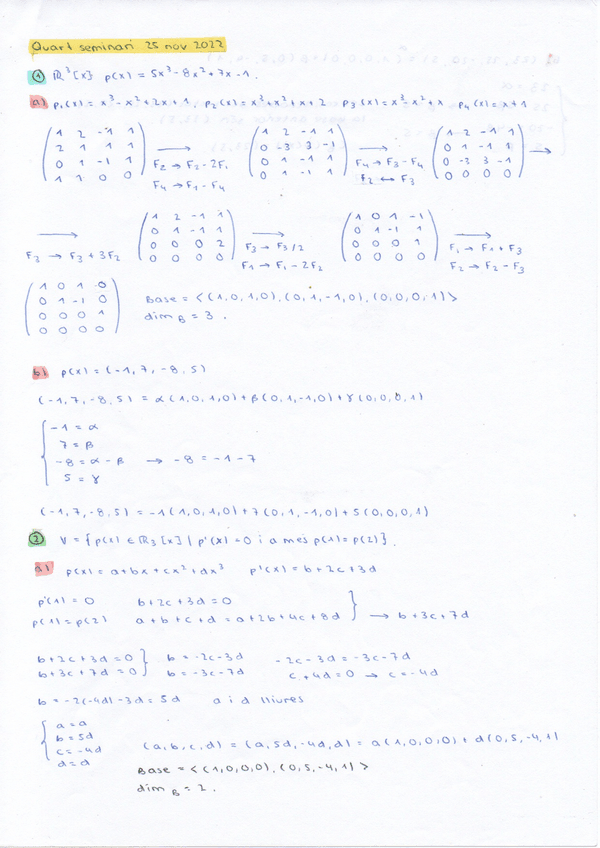 Quart seminari 25 nov 2022
① ℝ³[x] p(x) = 5x³-8x²+7x-1.
a) p₁(x) = x³-x²+2x+1, p₂(x) = x³+x²+x+2 p₃(x) = x³-x²+x p₄(x) = x+1
1 2 -1 1
2 1 1 1
0 1 -1 1
1 1 0 0
F₂ → F₂-2F₁
F₄ → F₁-F₄
1 2 -1 1
0 -3 3 -1
0 1 -1 1
0 1 -1 1
F₄ → F₃-F₄
F₂ ↔ F₃
1 2 -1 1
0 1 -1 1
0 -3 3 -1
0 0 0 0
F₃ → F₃+3F₂
1 2 -1 1
0 1 -1 1
0 0 0 2
0 0 0 0
F₃ → F₃/2
F₁ → F₁-2F₂
1 0 1 -1
0 1 -1 1
0 0 0 1
0 0 0 0
F₁ → F₁+F₃
F₂ → F₂-F₃
1 0 1 0
0 1 -1 0
0 0 0 1
0 0 0 0
Base = <(1,0,1,0),(0,1,-1,0),(0,0,0,1)>
dim B = 3.
b) p(x) = (-1,7,-8,5)
(-1,7,-8,5) = α(1,0,1,0)+β(0,1,-1,0)+γ(0,0,0,1)
-1 = α
7 = β
-8 = α-β → -8 = -1-7
5 = γ
(-1,7,-8,5) = -1(1,0,1,0)+7(0,1,-1,0)+5(0,0,0,1)
② V = {p(x) ∈ ℝ₃[x] | p'(x)=0 i a més p(1)=p(2)}.
a) p(x) = a+bx+cx²+dx³ p'(x) = b+2c+3d
p'(1) = 0 b+2c+3d=0
p(1) = p(2) a+b+c+d = a+2b+4c+8d } → b+3c+7d
b+2c+3d=0 } b = -2c-3d -2c-3d = -3c-7d
b+3c+7d=0 } b = -3c-7d c+4d=0 → c=-4d
b = -2(-4d)-3d = 5d a i d lliures
a = a
b = 5d
c = -4d
d = d
(a,b,c,d) = (a,5d,-4d,d) = a(1,0,0,0)+d(0,5,-4,1)
Base = <(1,0,0,0),(0,5,-4,1)>
dim B = 2.